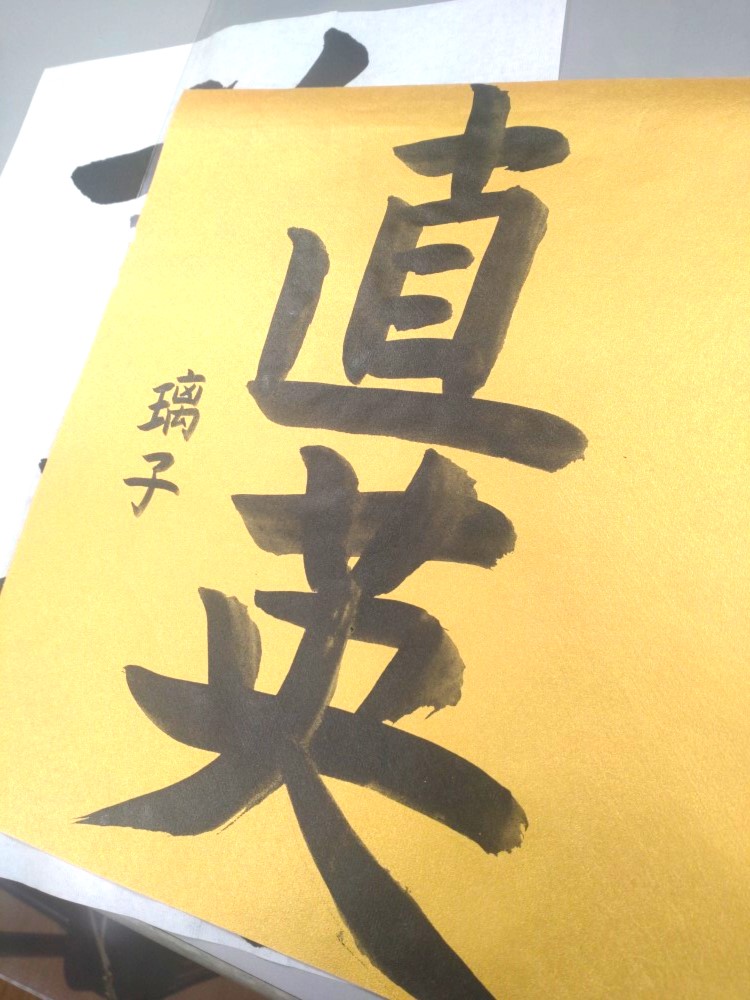 直英
璃子